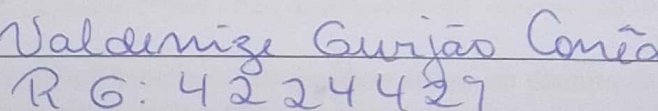 Valdenize Gurjão Corrêa
RG: 4224427